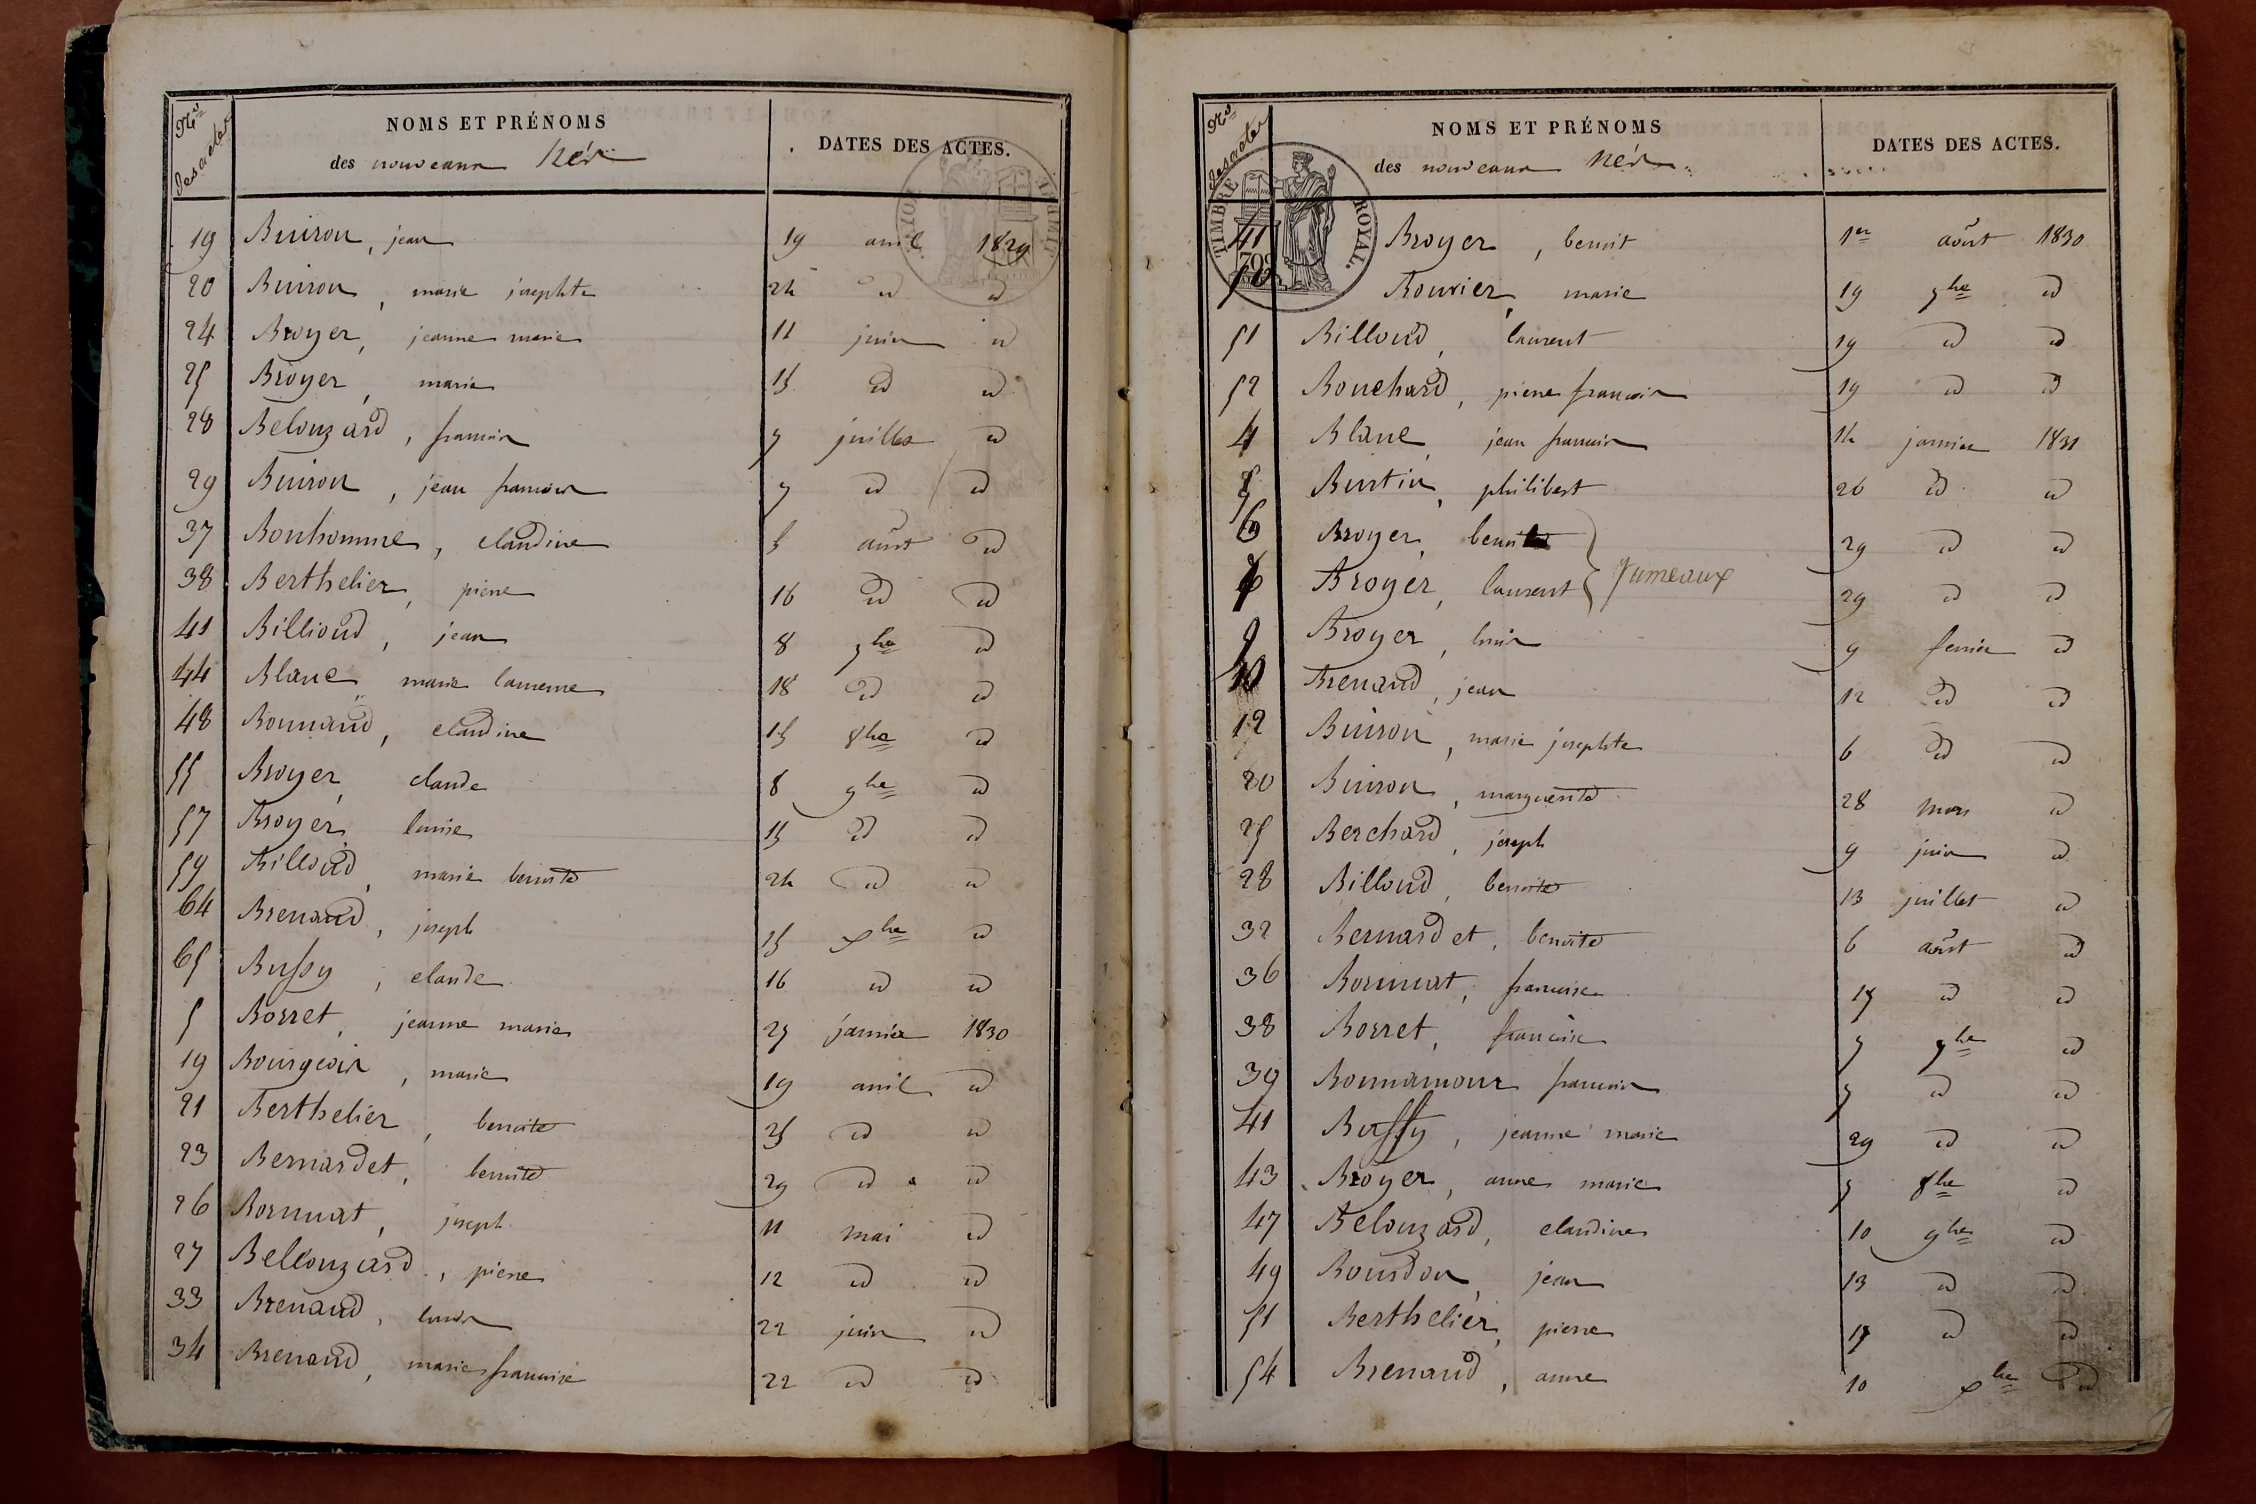 Nos des actes
NOMS ET PRÉNOMS
des nouveaux Nés
DATES DES ACTES.
19 Buiron, jean 19 avril 1829
20 Buiron, marie josephte 24 id id
24 Broyer, jeanne marie 11 juin id
25 Broyer, marie 15 id id
28 Belouzard, francois 7 juillet id
29 Buiron, jean francois 7 id id
37 Bonhomme, claudine 5 août id
38 Berthelier, pierre 16 id id
41 Billioud, jean 8 7bre id
44 Blanc marie 18 id id
48 Bonnaud, claudine 15 8bre id
55 Broyer, claude 8 9bre id
57 Broyer, louise 15 id id
59 Billoud, marie benoite 24 id id
64 Brenaud, joseph 15 xbre id
65 Bussy, claude 16 id id
5 Borret, jeanne marie 25 janvier 1830
19 Bourgeois, marie 19 avril id
21 Berthelier, benoite 25 id id
23 Bernardet, benoite 29 id id
26 Bornuat, joseph 11 mai id
27 Bellouzard, pierre 12 id id
33 Brenaud, louis 22 juin id
34 Brenaud, marie francoise 22 id id
Nos des actes
NOMS ET PRÉNOMS
des nouveaux Nés
DATES DES ACTES.
TIMBRE ROYAL.
41 Broyer, benoit 1er août 1830
Bouvier, marie 19 7bre id
51 Billoud, laurent 19 id id
52 Bouchard, pierre francois 19 id id
4 Blanc, jean francois 14 janvier 1831
5 Burtin, philibert 26 id id
6 Broyer, benoit 29 id id
Jumeaux
7 Broyer, laurent 29 id id
9 Broyer, louis 9 fevrier id
10 Brenaud, jean 12 id id
12 Buiron, marie josephte 6 id id
20 Buiron, marguerite 28 mars id
25 Berchard, joseph 9 juin id
28 Billoud, benoite 13 juillet id
32 Bernardet, benoite 6 août id
36 Bornuat, francoise 17 id id
38 Borret, francoise 5 7bre id
39 Bonnamour francois 5 id id
41 Bussy, jeanne marie 29 id id
43 Broyer, anne marie 5 8bre id
47 Belouzard, claudine 10 9bre id
49 Bourdon, jean 13 id id
51 Berthelier, pierre 17 id id
54 Brenaud, anne 10 xbre id